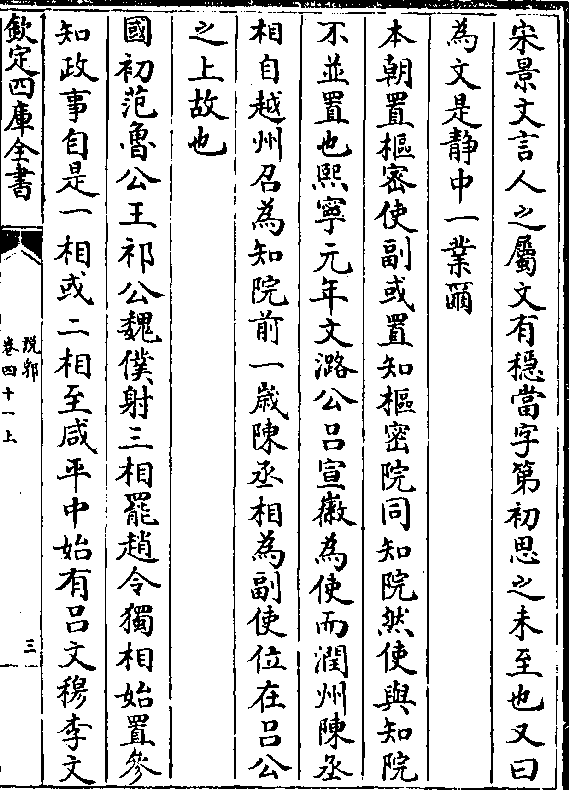 宋景文言人之屬文有穩當字第初思之未至也又曰
為文是靜中一業爾
本朝置樞密使副或置知樞密院同知院然使與知院
不並置也熙寧元年文潞公呂宣徽為使而潤州陳丞
相自越州召為知院前一歲陳丞相為副使位在呂公
之上故也
國初范魯公王祁公魏僕射三相罷趙令獨相始置參
知政事自是一相或二相至咸平中始有呂文穆李文
欽定四庫全書
說郛
卷四十一上
三